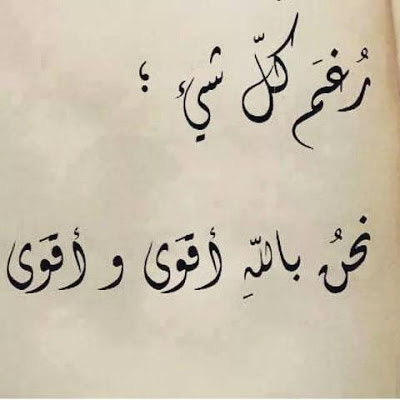 رُغَم كلّ شيٍ ؛
نحنُ باللّهِ أقوَى و أقوَى